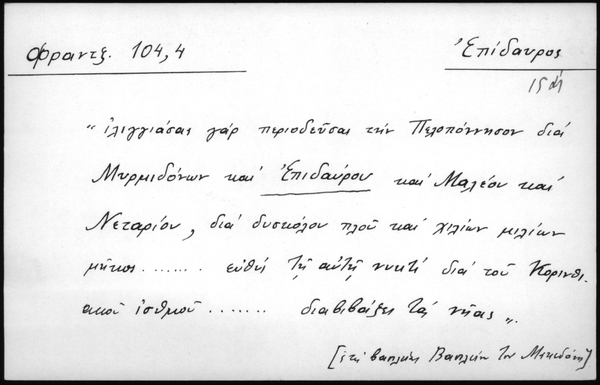 Φραντζ. 104,4
Ἐπίδαυρος
15
„ ἰλιγγιάσας γάρ περιοδεῦσαι τήν Πελοπόννησον διά
Μυρμιδόνων καί Ἐπιδαύρου καί Μαλέου καί
Νεταρίου, διά δυσκόλου πλοῦ καί χιλίων μιλίων
μῆκος ....... εὐθύς τῇ αὐτῇ νυκτί διά τοῦ Κορινθι-
ακοῦ ἰσθμοῦ ....... διαβιβάζει τάς νῆας „.
[ἐπί Βασιλείου τοῦ Μακεδόνος]